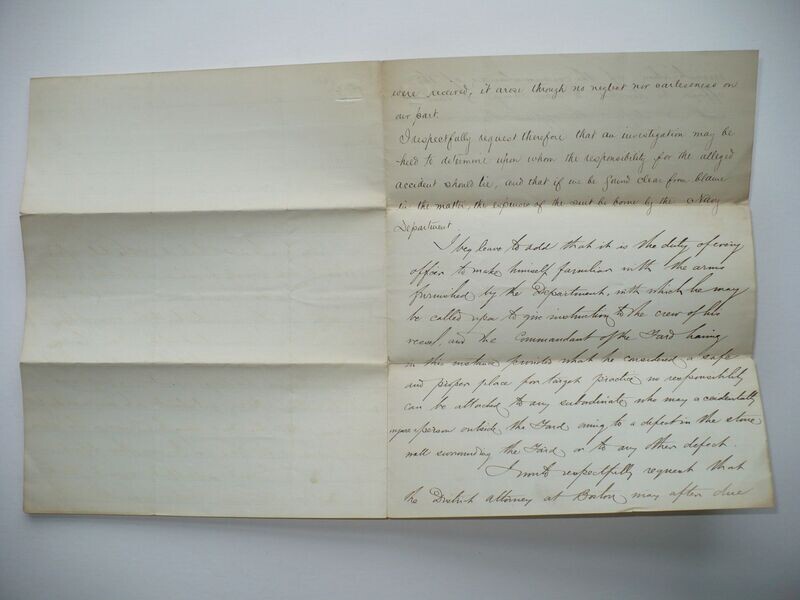 were received, it arose through no neglect nor carelessness on
our part.
I respectfully request therefore that an investigation may be
held to determine upon whom the responsibility for the alleged
accident should lie, and that if we be found clear from blame
in the matter, the expenses of the suit be borne by the Navy
Department.
I beg leave to add that it is the duty of every
officer to make himself familiar with the arms
furnished by the Department, with which he may
be called upon to give instruction to the crew of his
vessel, and the Commandant of the Yard having
in this instance provided what he considered a safe
and proper place for target practice no responsibility
can be attached to any subordinate who may accidentally
injure a person outside the Yard owing to a defect in the stone
wall surrounding the Yard or to any other defect.
I most respectfully request that
the District attorney at Boston may after due